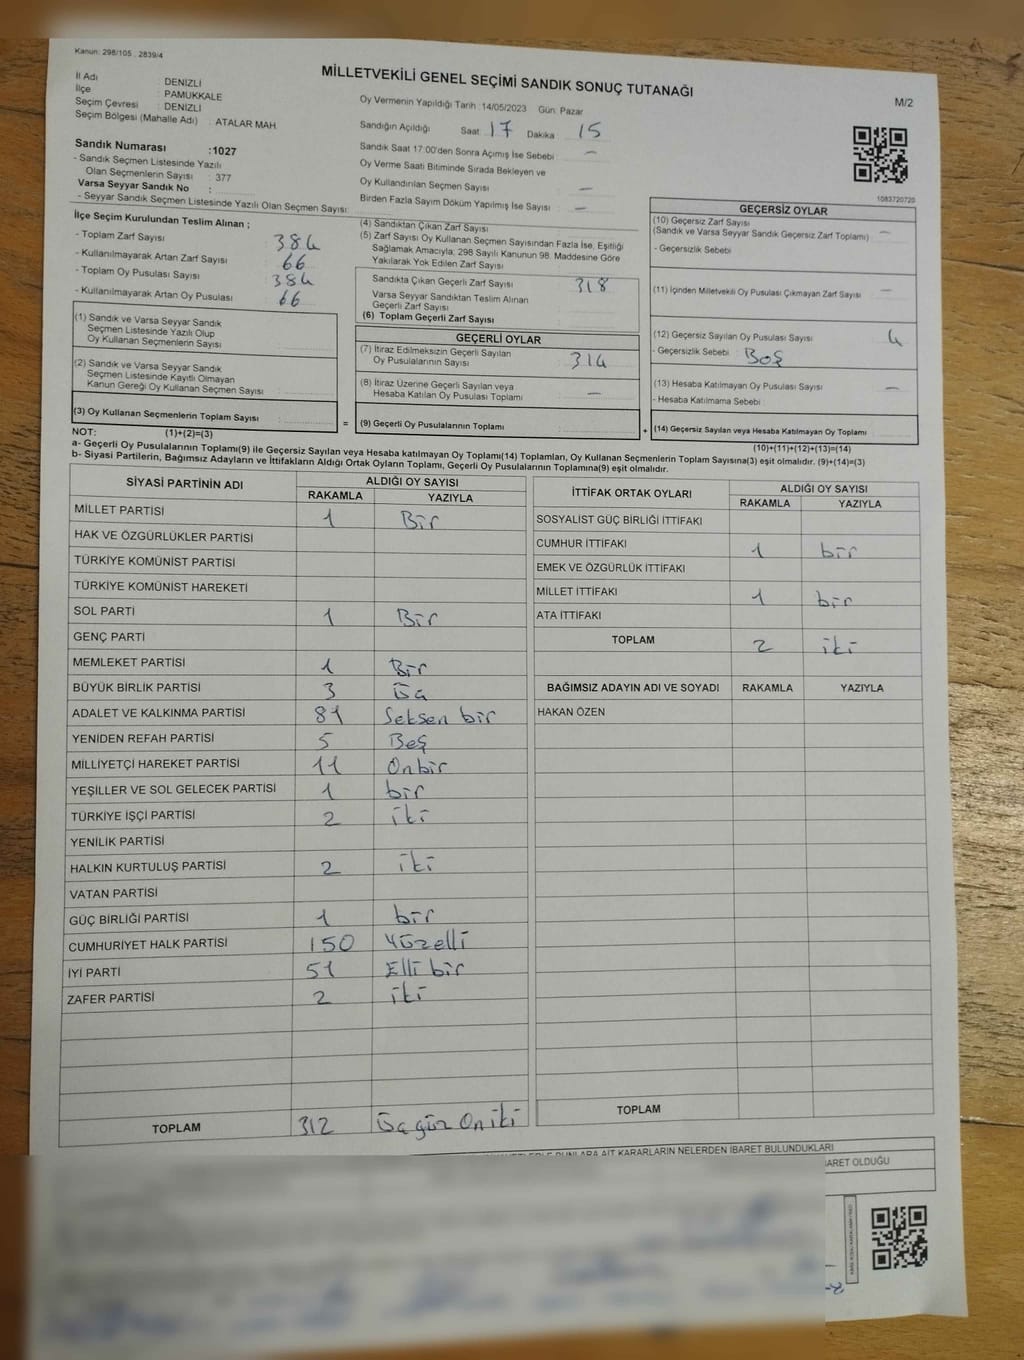 Kanun: 298/105 , 2839/4
MİLLETVEKİLİ GENEL SEÇİMİ SANDIK SONUÇ TUTANAĞI
M/2
İl Adı : DENİZLİ
İlçe : PAMUKKALE
Seçim Çevresi : DENİZLİ
Seçim Bölgesi (Mahalle Adı) : ATALAR MAH.
Sandık Numarası :1027
- Sandık Seçmen Listesinde Yazılı
Olan Seçmenlerin Sayısı : 377
Varsa Seyyar Sandık No :
- Seyyar Sandık Seçmen Listesinde Yazılı Olan Seçmen Sayısı:
Oy Vermenin Yapıldığı Tarih :14/05/2023 Gün: Pazar
Sandığın Açıldığı Saat 17 Dakika 15
Sandık Saat 17:00'den Sonra Açımış İse Sebebi –
Oy Verme Saati Bitiminde Sırada Bekleyen ve
Oy Kullandırılan Seçmen Sayısı –
Birden Fazla Sayım Döküm Yapılmış İse Sayısı –
1083720720
İlçe Seçim Kurulundan Teslim Alınan ;
- Toplam Zarf Sayısı 384
- Kullanılmayarak Artan Zarf Sayısı 66
- Toplam Oy Pusulası Sayısı 384
- Kullanılmayarak Artan Oy Pusulası 66
(1) Sandık ve Varsa Seyyar Sandık
Seçmen Listesinde Yazılı Olup
Oy Kullanan Seçmenlerin Sayısı
(2) Sandık ve Varsa Seyyar Sandık
Seçmen Listesinde Kayıtlı Olmayan
Kanun Gereği Oy Kullanan Seçmen Sayısı
(3) Oy Kullanan Seçmenlerin Toplam Sayısı
(4) Sandıktan Çıkan Zarf Sayısı
(5) Zarf Sayısı Oy Kullanan Seçmen Sayısından Fazla İse, Eşitliği
Sağlamak Amacıyla, 298 Sayılı Kanunun 98. Maddesine Göre
Yakılarak Yok Edilen Zarf Sayısı
Sandıkta Çıkan Geçerli Zarf Sayısı 318
Varsa Seyyar Sandıktan Teslim Alınan
Geçerli Zarf Sayısı
(6) Toplam Geçerli Zarf Sayısı
GEÇERLİ OYLAR
(7) İtiraz Edilmeksizin Geçerli Sayılan
Oy Pusulalarının Sayısı 314
(8) İtiraz Üzerine Geçerli Sayılan veya
Hesaba Katılan Oy Pusulası Toplamı –
= (9) Geçerli Oy Pusulalarının Toplamı +
GEÇERSİZ OYLAR
(10) Geçersiz Zarf Sayısı
(Sandık ve Varsa Seyyar Sandık Geçersiz Zarf Toplamı) –
- Geçersizlik Sebebi
(11) İçinden Milletvekili Oy Pusulası Çıkmayan Zarf Sayısı –
(12) Geçersiz Sayılan Oy Pusulası Sayısı 4
- Geçersizlik Sebebi : Boş
(13) Hesaba Katılmayan Oy Pusulası Sayısı –
- Hesaba Katılmama Sebebi :
(14) Geçersiz Sayılan veya Hesaba Katılmayan Oy Toplamı
NOT: (1)+(2)=(3) (10)+(11)+(12)+(13)=(14)
a- Geçerli Oy Pusulalarının Toplamı(9) ile Geçersiz Sayılan veya Hesaba katılmayan Oy Toplamı(14) Toplamları, Oy Kullanan Seçmenlerin Toplam Sayısına(3) eşit olmalıdır. (9)+(14)=(3)
b- Siyasi Partilerin, Bağımsız Adayların ve İttifakların Aldığı Ortak Oyların Toplamı, Geçerli Oy Pusulalarının Toplamına(9) eşit olmalıdır.
SİYASİ PARTİNİN ADI ALDIĞI OY SAYISI
RAKAMLA YAZIYLA
MİLLET PARTİSİ 1 Bir
HAK VE ÖZGÜRLÜKLER PARTİSİ
TÜRKİYE KOMÜNİST PARTİSİ
TÜRKİYE KOMÜNİST HAREKETİ
SOL PARTİ 1 Bir
GENÇ PARTİ
MEMLEKET PARTİSİ 1 Bir
BÜYÜK BİRLİK PARTİSİ 3 Üç
ADALET VE KALKINMA PARTİSİ 81 Seksen bir
YENİDEN REFAH PARTİSİ 5 Beş
MİLLİYETÇİ HAREKET PARTİSİ 11 Onbir
YEŞİLLER VE SOL GELECEK PARTİSİ 1 bir
TÜRKİYE İŞÇİ PARTİSİ 2 iki
YENİLİK PARTİSİ
HALKIN KURTULUŞ PARTİSİ 2 iki
VATAN PARTİSİ
GÜÇ BİRLİĞİ PARTİSİ 1 bir
CUMHURİYET HALK PARTİSİ 150 Yüzelli
İYİ PARTİ 51 Elli bir
ZAFER PARTİSİ 2 iki
TOPLAM 312 Üçyüz Oniki
İTTİFAK ORTAK OYLARI ALDIĞI OY SAYISI
RAKAMLA YAZIYLA
SOSYALİST GÜÇ BİRLİĞİ İTTİFAKI
CUMHUR İTTİFAKI 1 bir
EMEK VE ÖZGÜRLÜK İTTİFAKI
MİLLET İTTİFAKI 1 bir
ATA İTTİFAKI
TOPLAM 2 iki
BAĞIMSIZ ADAYIN ADI VE SOYADI RAKAMLA YAZIYLA
HAKAN ÖZEN
TOPLAM
AİT KARARLARIN NELERDEN İBARET BULUNDUKLARI
OLDUĞU